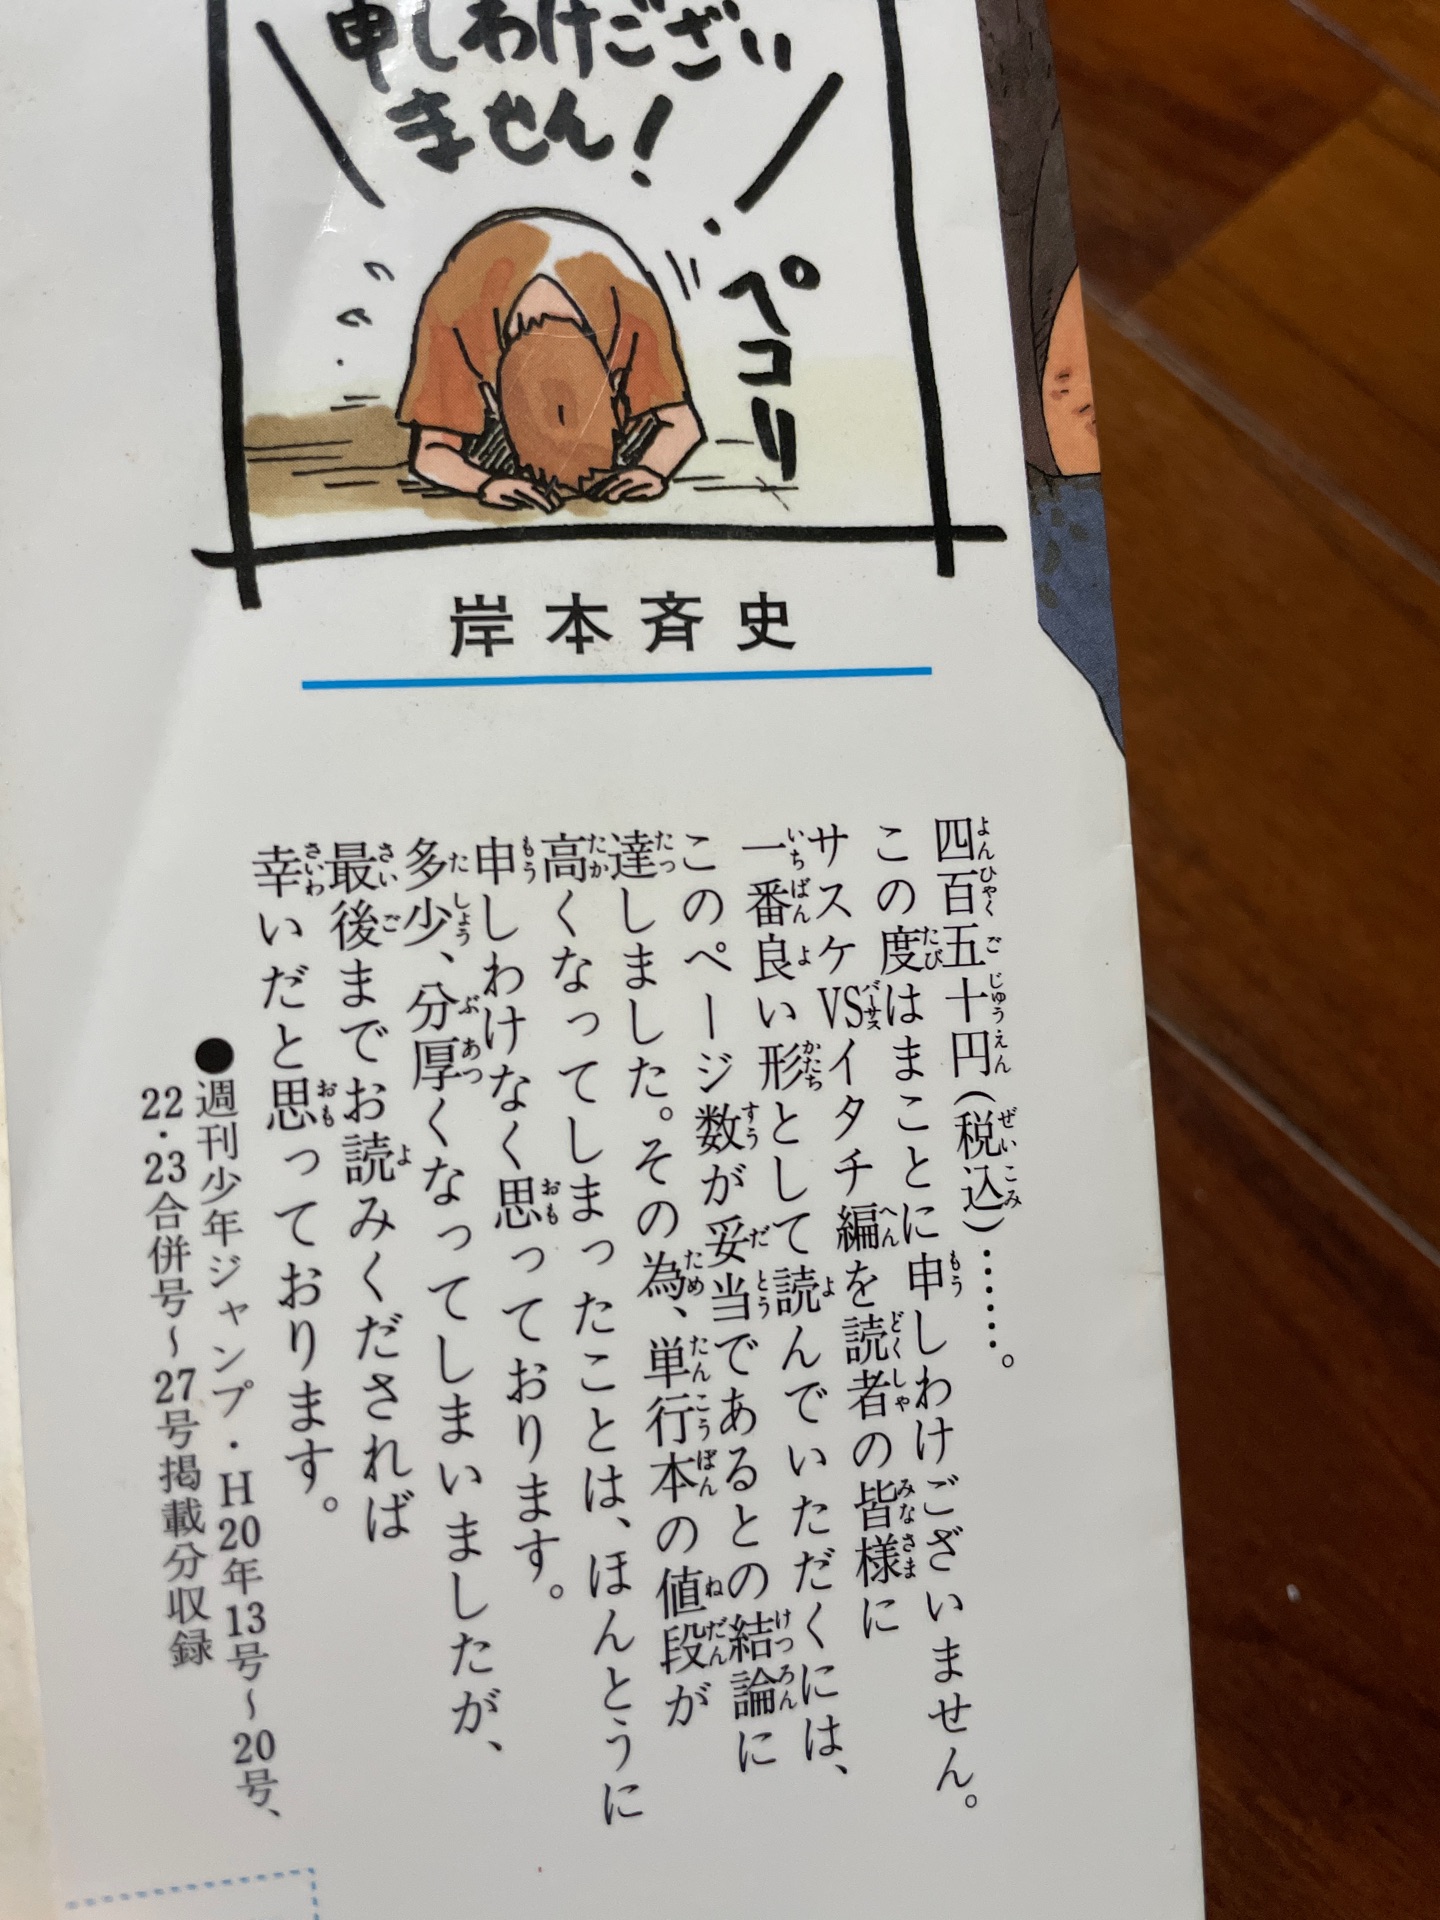 申しわけござい
ません！
ペコリ
岸本斉史
四百五十円（税込）……。
この度はまことに申しわけございません。
サスケVSイタチ編を読者の皆様に
一番良い形として読んでいただくには、
このページ数が妥当であるとの結論に
達しました。その為、単行本の値段が
高くなってしまったことは、ほんとうに
申しわけなく思っております。
多少、分厚くなってしまいましたが、
最後までお読みくだされば
幸いだと思っております。
●週刊少年ジャンプ・H20年13号～20号、
22・23合併号～27号掲載分収録